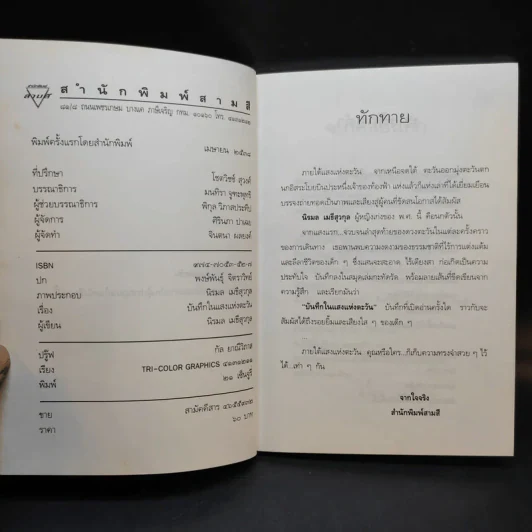 สำนักพิมพ์สามสี
ถนนเพชรเกษม บางแค ภาษีเจริญ กทม. ๑๐๑๖๐ โทร.
พิมพ์ครั้งแรกโดยสำนักพิมพ์ เมษายน ๒๕๓๘
ที่ปรึกษา โชตวิชช์ สุวงศ์
บรรณาธิการ มนทิรา จูฑะพุทธิ
ผู้ช่วยบรรณาธิการ พิกุล วิภาสประทีป
ผู้จัดการ ศิรินภา
ผู้จัดทำ จินตนา ผลยงค์
ISBN
ปก พงษ์พันธุ์ จิตราวิทย์
ภาพประกอบ นิรมล เมธีสุวกุล
เรื่อง บันทึกในแสงแห่งตะวัน
ผู้เขียน นิรมล เมธีสุวกุล
ปรู๊ฟ กัล ยาณีวิภาส
เรียง TRI-COLOR GRAPHICS
พิมพ์ ๒๑ เซ็นจูรี่
ขาย สามัคคีสาร
ราคา ๖๐ บาท
ทักทาย
ภายใต้แสงแห่งตะวัน จากเหนือจดใต้ ตะวันออกมุ่งตะวันตก
นกอิสระโบยบินประหนึ่งเจ้าของท้องฟ้า แห่งแล้วก็แห่งเล่าที่ได้เยี่ยมเยือน
บรรจงถ่ายทอดเป็นภาพและเสียงสู่ผู้คนที่ขัดสนโอกาสได้สัมผัส
นิรมล เมธีสุวกุล ผู้หญิงเก่งของ พ.ศ. นี้ คือนกตัวนั้น
จากแดนแรก...จวบจนล่าสุดท้ายของดวงตะวันในแต่ละครั้งคราว
ของการเดินทาง เธอพานพบความงดงามของธรรมชาติที่ไร้การแต่งแต้ม
และลีลาชีวิตของเด็ก ๆ ซึ่งแสนจะสะอาด ไร้เดียงสา ก่อเกิดเป็นความ
ประทับใจ บันทึกลงในสมุดเล่มกะทัดรัด พร้อมลายเส้นที่ขีดเขียนจาก
ความรู้สึก และเรียกมันว่า
"บันทึกในแสงแห่งตะวัน" บันทึกที่เปิดอ่านครั้งใด ราวกับจะ
สัมผัสได้ถึงรอยยิ้มและเสียงใส ๆ ของเด็ก ๆ
ภายใต้แสงแห่งตะวัน คุณหรือใคร..ก็เก็บความทรงจำสวย ๆ ไว้
ได้...เท่า ๆ กัน
จากใจจริง
สำนักพิมพ์สามสี